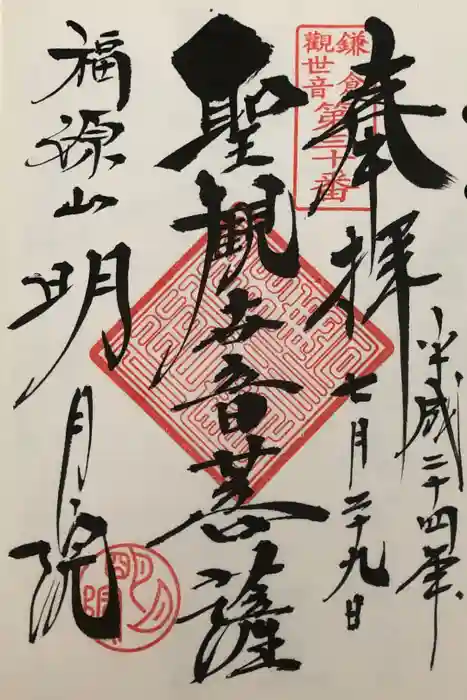 奉拝
鎌倉
觀世音
第三十番
平成二十四年
七月二十九日
聖観世音菩薩
福源山
明月院